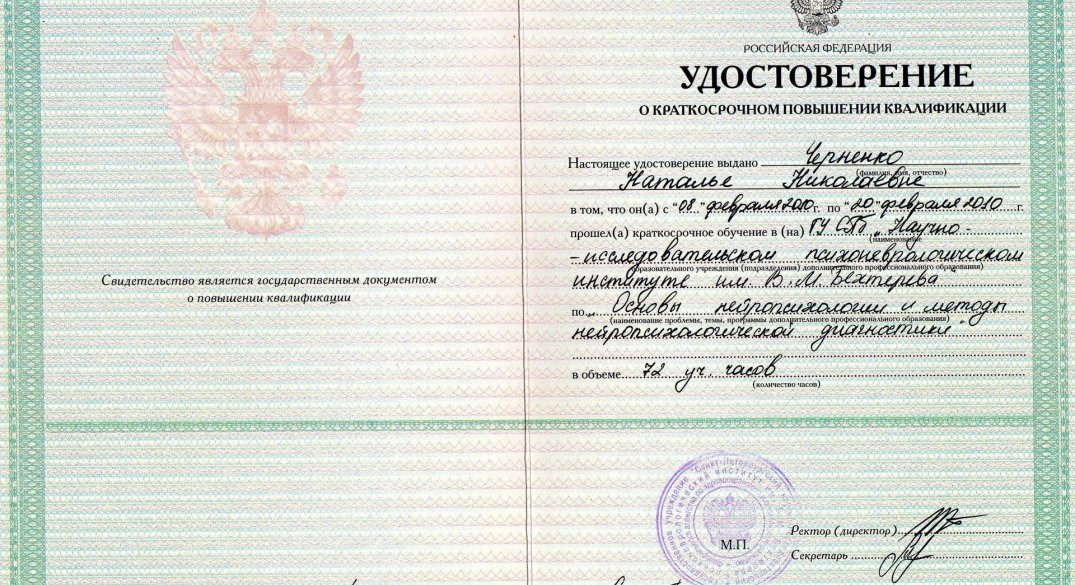 Свидетельство является государственным документом
о повышении квалификации
РОССИЙСКАЯ ФЕДЕРАЦИЯ
УДОСТОВЕРЕНИЕ
О КРАТКОСРОЧНОМ ПОВЫШЕНИИ КВАЛИФИКАЦИИ
Настоящее удостоверение выдано Черненко
(фамилия, имя, отчество)
Наталье Николаевне
в том, что он(а) с "08" февраля 2010 г. по "20" февраля 2010 г.
прошел(а) краткосрочное обучение в (на) ГУ СПб „Научно-
(наименование
-исследовательском психоневрологическом
образовательного учреждения (подразделения) дополнительного профессионального образования)
институте им. В.М. Бехтерева"
по „Основы нейропсихологии и методы
(наименование проблемы, темы, программы дополнительного профессионального образования)
нейропсихологической диагностики"
в объеме 72 уч. часов
(количество часов)
М.П.
Ректор (директор)
Секретарь